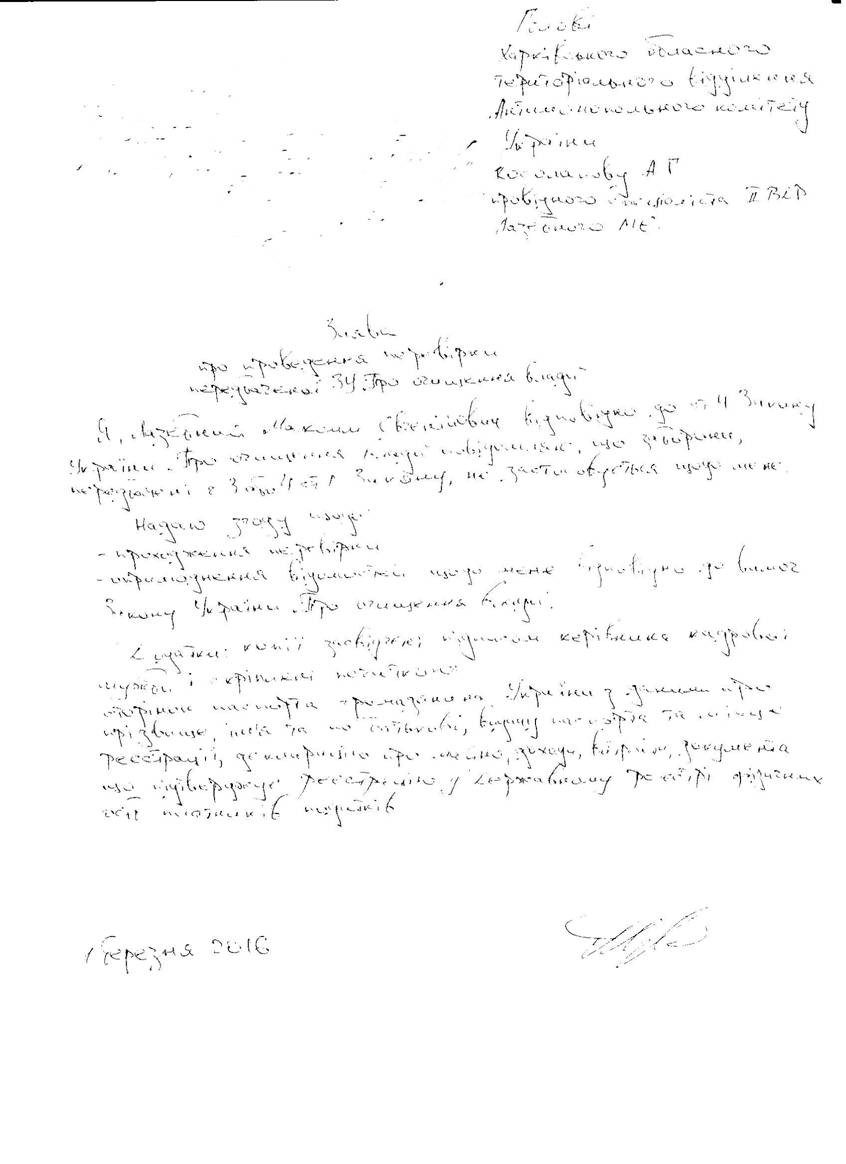 Голові
Харківського обласного
територіального відділення
Антимонопольного комітету
України
Коломакову А Г
провідного спеціаліста II ВДР
Лазебного МЄ.
Заява
про проведення перевірки
передбаченої ЗУ "Про очищення влади"
Я, Лазебний Максим Євгенійович відповідно до ст 4 Закону
України "Про очищення влади" повідомляю, що заборони,
передбачені ч 3 або 4 ст 1 Закону, не застосовується щодо мене.
Надаю згоду щодо
- проходження перевірки
- оприлюднення відомостей щодо мене відповідно до вимог
Закону України "Про очищення влади".
Додатки: копії засвідчені підписом керівника кадрової
служби і скріплені печаткою
сторінок паспорта громадянина України з даними про
прізвище, ім'я та по батькові, видачу паспорта та місце
реєстрації, декларацію про майно, доходи, витрати, документа
що підтверджує реєстрацію у Державному реєстрі фізичних
осіб платників податків
1 березня 2016